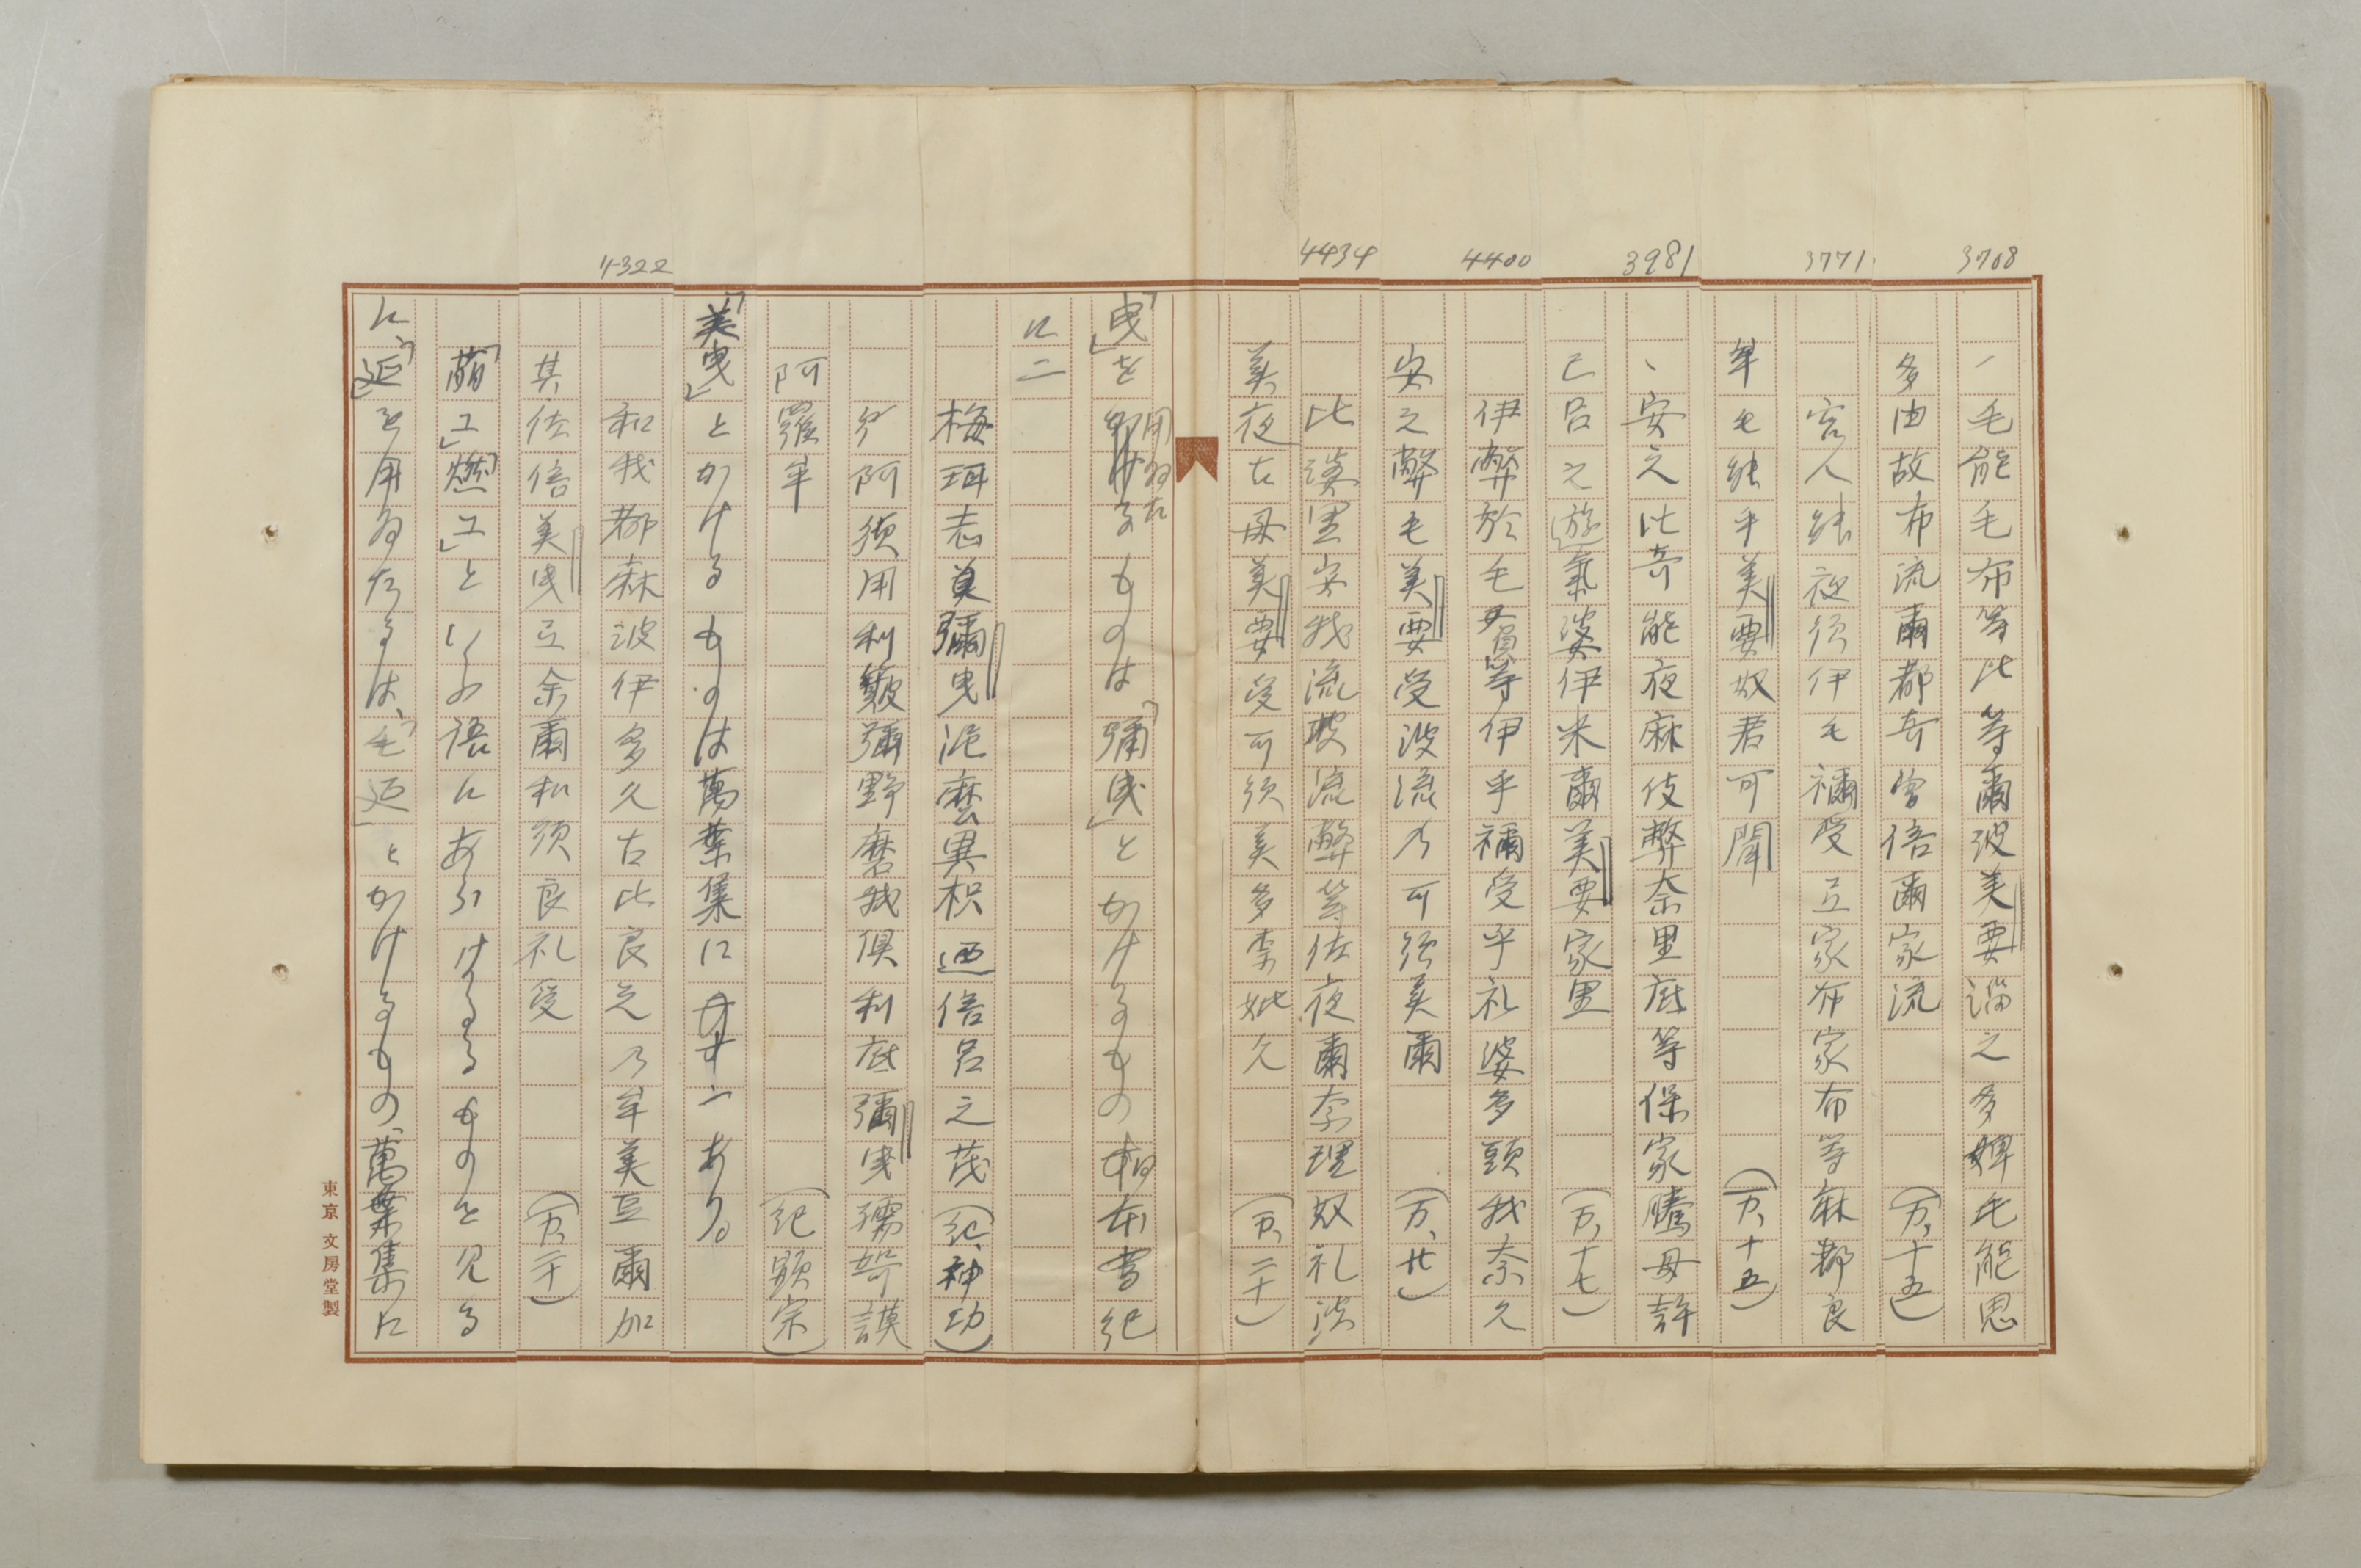 3708
一毛能毛布等比等爾波美要淄之多婢毛能思
多由故布流爾都奇曽倍爾家流(万、十五)
3771
宮人能夜須伊毛祢受弖家布家布等麻都良
牟毛能乎美要奴君可聞(万、十五)
3981
、安之比奇能夜麻伎弊奈里底等保家騰母許
己呂之遊氣婆伊米爾美要家里(万、十七)
4400
伊弊於毛負等伊乎祢受乎礼婆多頭我奈久
安之弊毛美要受波流乃可須美爾(万、廿)
4434
比婆里安我流波流弊等佐夜爾奈理奴礼波
美夜古母美要受可須美多奈妣久(万、二十)
「曳」を用ゐたるものは「彌曳」とかけるもの日本書紀
に二
梅珥志弥曳泥麼異枳廼倍呂之茂(紀、神功)
阿須用利皴彌野磨我倶利底彌曳孺哿謨
阿羅牟(紀顕宗)
「美曳」とかけるものは萬葉集に一ある
4322
和我都麻波伊多久古比良之乃牟美豆爾加
其佐倍美曳弖余爾和須良礼受(万、二十)
「萠エ」「燃エ」といふ語にあらはるるものを見る
に、「延」を用ゐたるは、「毛延」とかけるもの、萬葉集に
東京 文房堂製